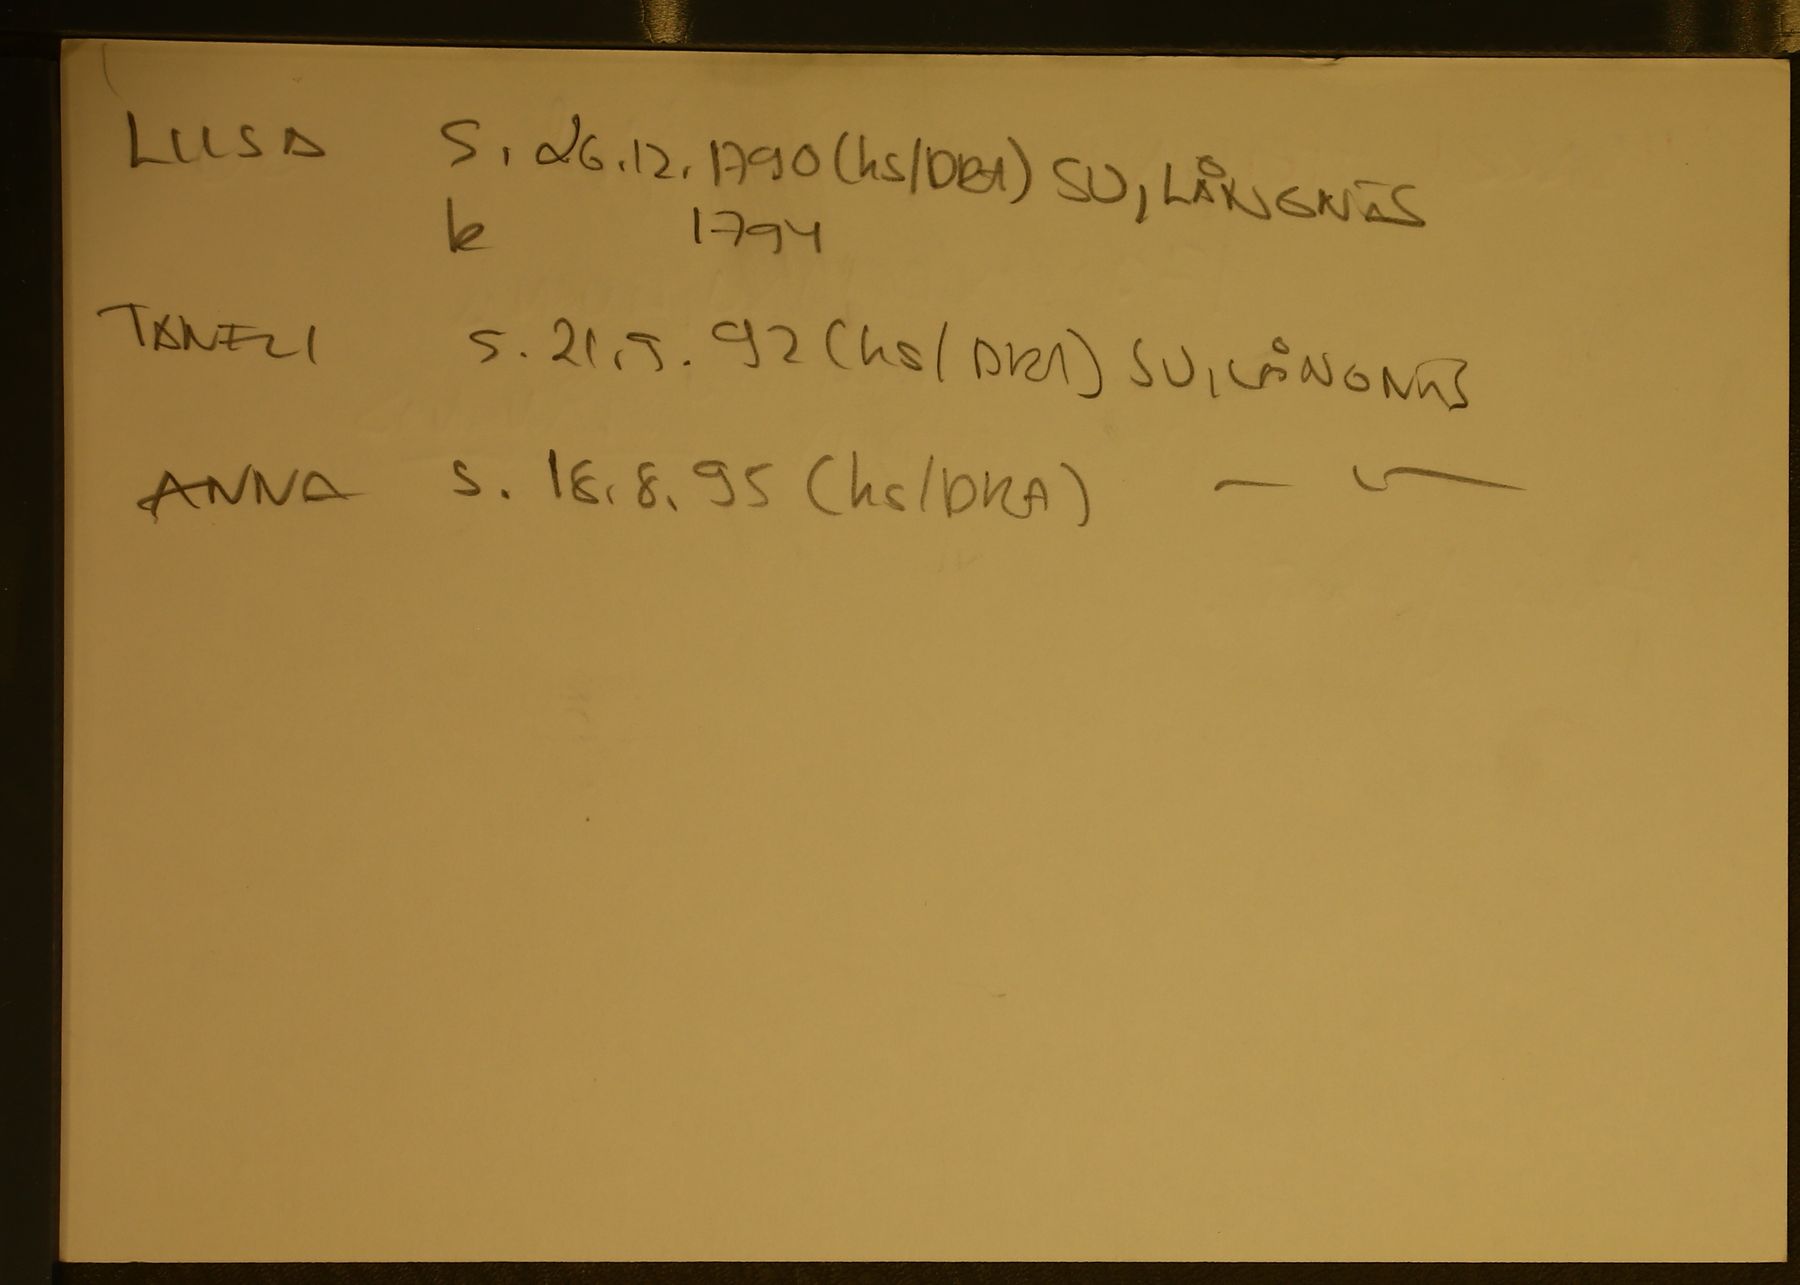 LIISA S. 26.12.1790 (hs/DRA) SU, LÅNGNÄS
k 1794
TANELI S. 21.5.92 (hs/DRA) SU, LÅNGNÄS
ANNA S. 18.8.95 (hs/DRA) — " —